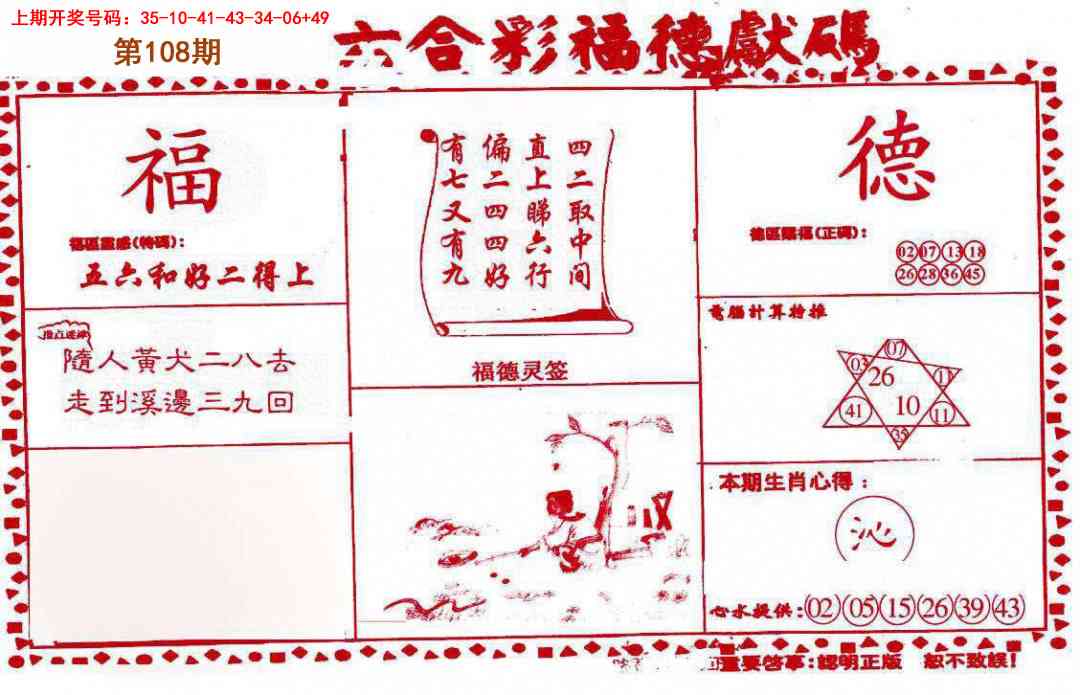 上期开奖号码：35-10-41-43-34-06+49
第108期
六合彩福德獻碼
福
福區靈感(特碼)：
五六和好二得上
隨人黃犬二八去
走到溪邊三九回
四二取中间
直上睇六行
偏二四四好
有七又有九
福德灵签
德
德區賜福(正碼)：
02 07 13 18
26 28 36 45
電腦計算特推
07
03
26
41
10
11
35
本期生肖心得：
沁
心水提供：02 05 15 26 39 43
重要啓事：認明正版 恕不致誤！